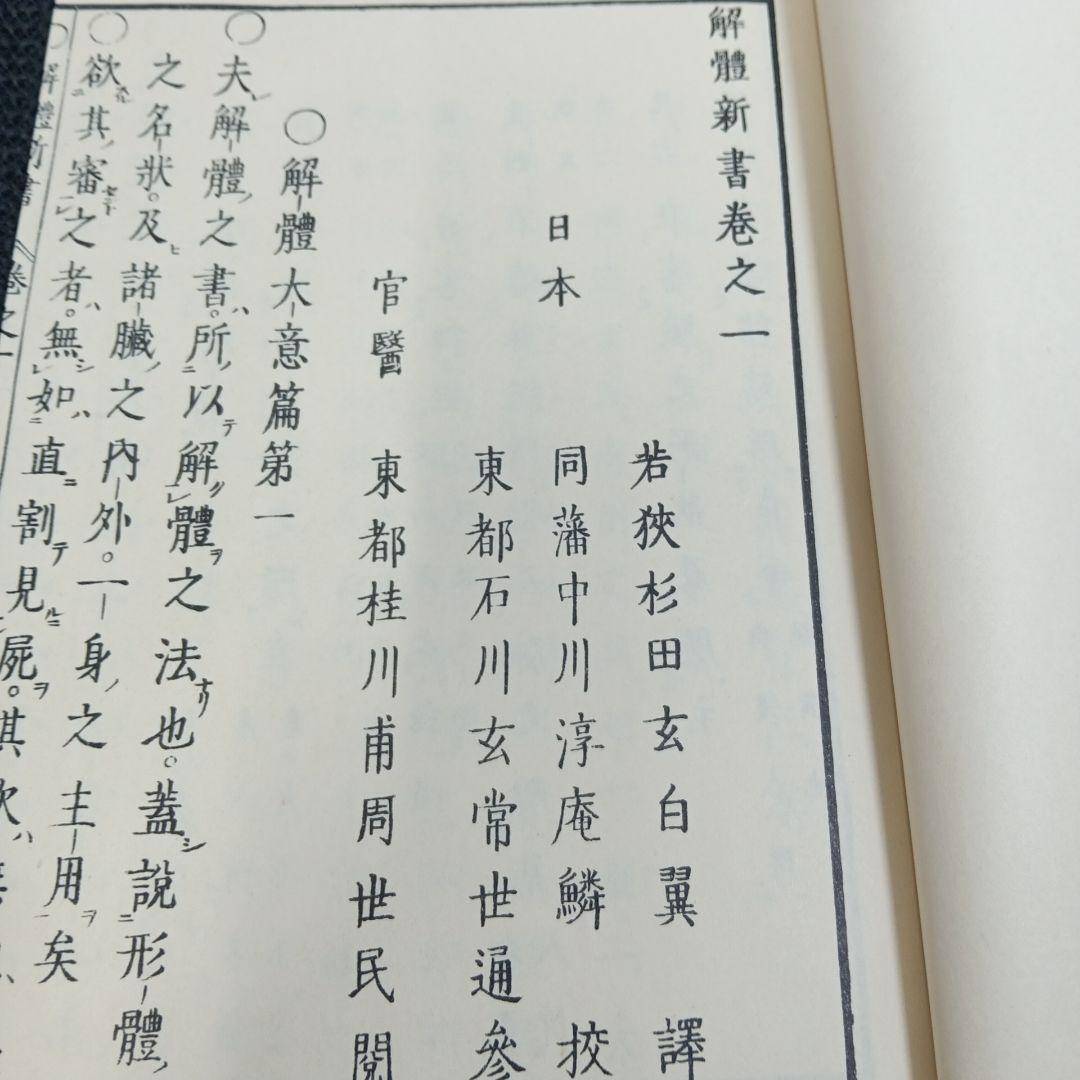 解體新書卷之一
若狹杉田玄白翼 譯
日本 同藩中川淳庵鱗 挍
東都石川玄常世通 參
官醫 東都桂川甫周世民 閱
○解體大意篇第一
○夫解體之書。所以解體之法也。蓋說形體
之名狀。及諸臟之內外。一身之主用矣
○欲其審之者。無如直割見屍。其次
解體新書 卷之一